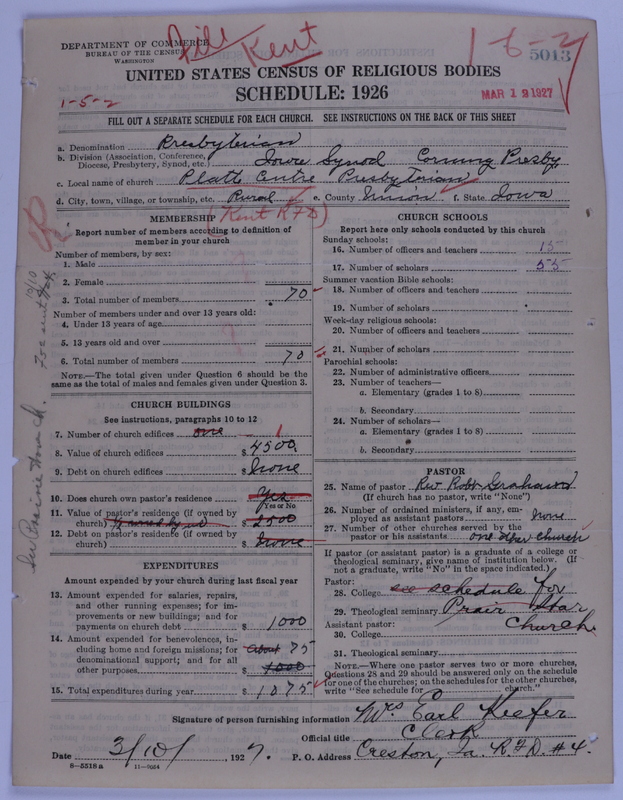 DEPARTMENT OF COMMERCE
BUREAU OF THE CENSUS
WASHINGTON
File Kent
1-6-2
5013
UNITED STATES CENSUS OF RELIGIOUS BODIES
SCHEDULE: 1926
1-5-2
MAR 12 1927
FILL OUT A SEPARATE SCHEDULE FOR EACH CHURCH. SEE INSTRUCTIONS ON THE BACK OF THIS SHEET
a. Denomination Presbyterian
b. Division (Association, Conference, Diocese, Presbytery, Synod, etc.) Iowa Synod Corning Presby
c. Local name of church Platt Centre Presbyterian
d. City, town, village, or township, etc. Rural e. County Union f. State Iowa
(Kent RFD)
MEMBERSHIP
Report number of members according to definition of member in your church
Number of members, by sex:
1. Male
2. Female
3. Total number of members 70
Number of members under and over 13 years old:
4. Under 13 years of age
5. 13 years old and over
6. Total number of members 70
NOTE.—The total given under Question 6 should be the same as the total of males and females given under Question 3.
CHURCH BUILDINGS
See instructions, paragraphs 10 to 12
7. Number of church edifices one 1
8. Value of church edifices $4500
9. Debt on church edifices $None
10. Does church own pastor's residence Yes
Yes or No
11. Value of pastor's residence (if owned by church) $2500
12. Debt on pastor's residence (if owned by church) $None
EXPENDITURES
Amount expended by your church during last fiscal year
13. Amount expended for salaries, repairs, and other running expenses; for improvements or new buildings; and for payments on church debt $1000
14. Amount expended for benevolences, including home and foreign missions; for denominational support; and for all other purposes About 75 $1000
15. Total expenditures during year $1075
CHURCH SCHOOLS
Report here only schools conducted by this church
Sunday schools:
16. Number of officers and teachers 15
17. Number of scholars 55
Summer vacation Bible schools:
18. Number of officers and teachers
19. Number of scholars
Week-day religious schools:
20. Number of officers and teachers
21. Number of scholars
Parochial schools:
22. Number of administrative officers
23. Number of teachers—
a. Elementary (grades 1 to 8)
b. Secondary
24. Number of scholars—
a. Elementary (grades 1 to 8)
b. Secondary
PASTOR
25. Name of pastor Rev Robt Graham
(If church has no pastor, write "None")
26. Number of ordained ministers, if any, employed as assistant pastors None
27. Number of other churches served by the pastor or his assistants one other church
If pastor (or assistant pastor) is a graduate of a college or theological seminary, give name of institution below. (If not a graduate, write "No" in the space indicated.)
Pastor:
28. College see schedule for
29. Theological seminary Prair Star
Assistant pastor: Church
30. College
31. Theological seminary
NOTE.—Where one pastor serves two or more churches, Questions 28 and 29 should be answered only on the schedule for one of the churches; on the schedules for the other churches, write "See schedule for church."
Signature of person furnishing information Mrs Earl Keefer
Official title Clerk
Date 3/10/, 1927. P. O. Address Creston, Ia. R.F.D. #4.
8—5518 a 11—9034